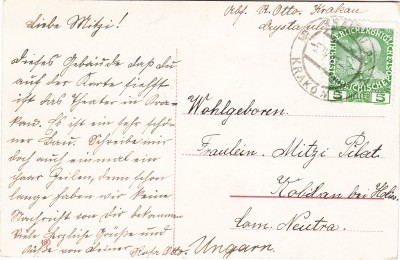 Liebe Mitzi!
Dieses Gebäude das du
auf der Karte siehst
ist das Theater in Kra-
kau. Es ist ein sehr schö-
ner Bau. Schreibe mir
doch auch einmal ein
paar Zeilen, denn schon
lange haben wir keine
Nachricht von Dir bekommen
Viele herzliche Grüsse und
Küsse von Deiner
Otto.
Abs. R. Otto. Krakau
KRAKÓW
5 HELLER 5
Wohlgeboren.
Fräulein Mitzi Pilat
Kobilan bei Holics
Com. Neutra.
Ungarn.